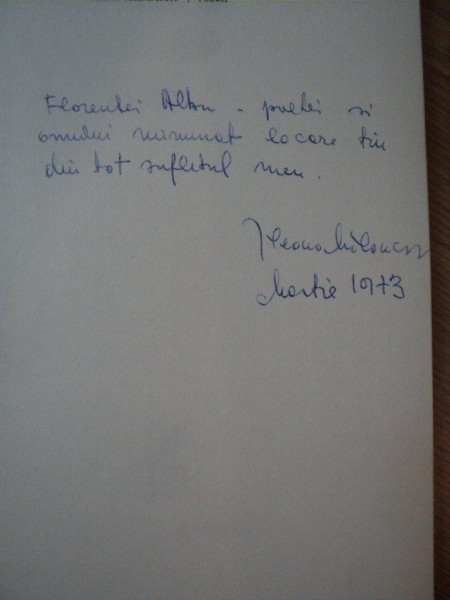 Florenței Albu - poetei și
omului minunat la care țin
din tot sufletul meu.
Ileana Mălăncioiu
Martie 1973